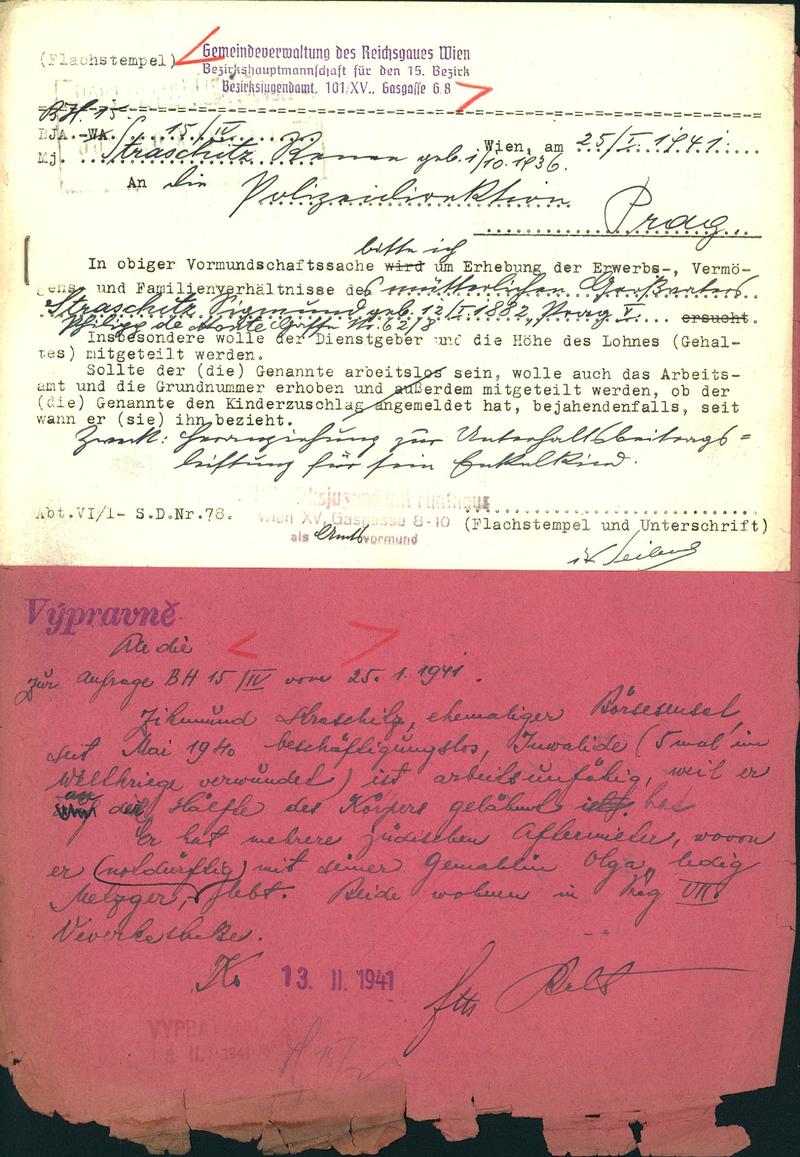 (Flachstempel)
Gemeindeverwaltung des Reichsgaues Wien
Bezirkshauptmannschaft für den 15. Bezirk
Bezirksjugendamt, 101/XV., Gasgasse 6 8
BH 15
BJA.-WA. 15/IV
Wien, am 25/I. 1941.
Mj. Straschitz geb. 1/10.1936.
An die Polizeidirektion
Prag
bitte ich
In obiger Vormundschaftssache wird um Erhebung der Erwerbs-, Vermö-
gens und Familienverhältnisse des mütterlichen Großvaters
Straschitz Sigmund geb. 12/I.1882, Prag V. ersucht.
Philipp de Monte Gasse Nr. 62/8
Insbesondere wolle der Dienstgeber und die Höhe des Lohnes (Gehal-
tes) mitgeteilt werden.
Sollte der (die) Genannte arbeitslos sein, wolle auch das Arbeits-
amt und die Grundnummer erhoben und außerdem mitgeteilt werden, ob der
(die) Genannte den Kinderzuschlag angemeldet hat, bejahendenfalls, seit
wann er (sie) ihn bezieht.
Zweck: Heranziehung zur Unterhaltsbeitrags=
leistung für sein Enkelkind.
Abt.VI/1- S.D.Nr.78.
Wien XV, Gasgasse 8-10
(Flachstempel und Unterschrift)
als Amtsvormund
Výpravně
An die
zur Anfrage BH 15/IV vom 25.1.1941.
Zikmund Straschitz, ehemaliger Börsesensal,
seit Mai 1940 beschäftigungslos, Invalide (5 mal im
Weltkriege verwundet) ist arbeitsunfähig, weil er
an der Hälfte des Körpers gelähmt ist.
Er hat mehrere jüdischen Aftermieter, wovon
er (notdürftig) mit seiner Gemahlin Olga, ledig
Metzger, lebt. Beide wohnen in Prag VII.
13. II. 1941